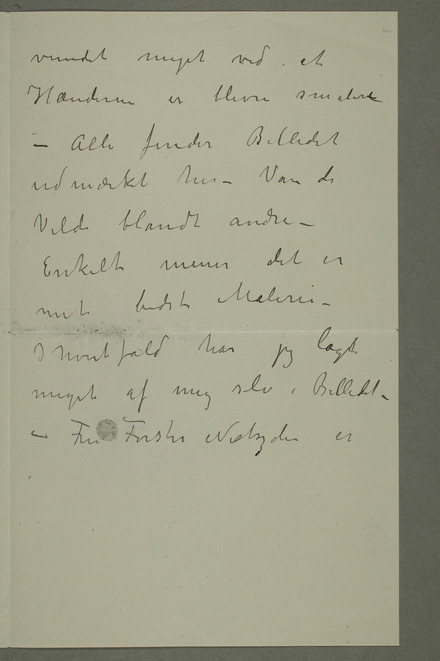 vundet meget ved at
Hænderne er blevne smalere
– Alle finder Billedet
udmærket her – Van de
Velde blandt andre –
Enkelte mener det er
mit bedste Maleri –
I hvert fald har jeg lagt
meget af meg selv i Billedet –
– Fru Förster Nietzsche er